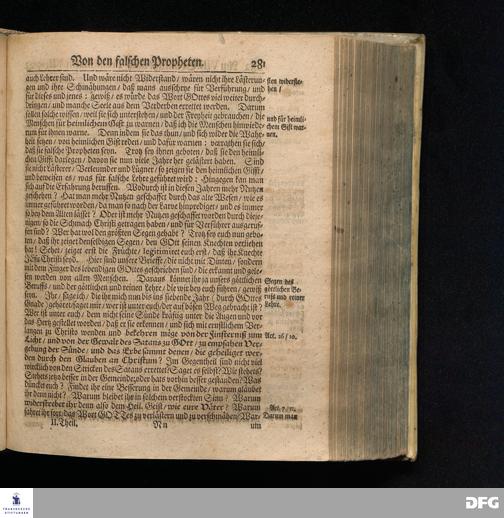 Von den falschen Propheten. 281
auch Lehrer sind. Und wäre nicht Widerstand / wären nicht ihre Lästerun-
gen und ihre Schmähungen / daß mans ausschrye für Verführung / und
für dieses und jenes: gewiß / es würde das Wort GOttes viel weiter durch-
dringen / und manche Seele aus dem Verderben errettet werden. Darum
sollen solche wissen / weil sie sich unterstehen / und der Freyheit gebrauchen / die
Menschen für heimlichem Gifft zu warnen / daß ich die Menschen hinwiede-
rum für ihnen warne. Denn indem sie das thun / und sich wider die Wahr-
heit setzen / von heimlichen Gifft reden / und dafür warnen: verrathen sie sich /
daß sie falsche Propheten seyn. Trotz sey ihnen geboten / daß sie den heimli-
chen Gifft darlegen / davon sie nun viele Jahre her gelästert haben. Sind
sie nicht Lästerer / Verleumder und Lügner / so zeigen sie den heimlichen Gifft /
und beweisen es / was für falsche Lehre geführet wird: Hingegen kan man
sich auf die Erfahrung beruffen. Wodurch ist in diesen Jahren mehr Nutzen
geschehen? Hat man mehr Nutzen geschaffet durch das alte Wesen / wie es
immer geführet worden / da man so nach der Larve hinprediget / und es immer
so bey dem Alten lässet? Oder ist mehr Nutzen geschaffet worden durch dieje-
nigen / so die Schmach Christi getragen haben / und für Verführer ausgeruf-
fen sind? Wer hat wol den grösten Segen gehabt? Trotz sey euch nun gebo-
ten / daß ihr zeiget denselbigen Segen / den GOtt seinen Knechten verliehen
hat! Sehet / zeiget erst die Früchte / legitimiret euch erst / daß ihr Knechte
JEsu Christi seyd. Hier sind unsere Brieffe / die nicht mit Dinten / sondern
mit dem Finger des lebendigen GOttes geschrieben sind / die erkannt und gele-
sen werden von allen Menschen. Daraus könnet ihr ja unsers göttlichen
Beruffs / und der göttlichen und reinen Lehre / die wir bey euch führen / gewiß
seyn. Ihr / sage ich / die ihr mich nun bis ins siebende Jahr (durch GOttes
Gnade) gehöret / saget mir / wer ist unter euch / der auf bösen Weg gebracht ist?
Wer ist unter euch / dem nicht seine Sünde kräftig unter die Augen und vor
das Hertz gestellet worden / daß er sie erkennen / und sich mit ernstlichem Ver-
langen zu Christo wenden und bekehren möge von der Finsterniß zum
Licht / und von der Gewalt des Satans zu GOtt / zu empfahen Ver-
gebung der Sünde / und das Erbe samt denen / die geheiliget wer-
den durch den Glauben an Christum? Im Gegentheil sind nicht viel
würcklich von den Stricken des Satans errettet / Saget es selbst? Wie stehets?
Stehets jetzo besser in der Gemeinde / oder hats vorhin besser gestanden? Was
düncket euch? Findet ihr eine Besserung in der Gemeinde / warum glaubet
ihr denn nicht? Warum bleibet ihr in solchem verstockten Sinn? Warum
widerstrebet ihr denn also dem Heil. Geist / wie eure Väter? Warum
fahret ihr fort / das Wort GOTTes zu verlästern und zu verschmähen? War-
II. Theil. N n um
sten widerste-
hen /
und für heimli-
chem Gift war-
nen.
Segen des
göttlichen Be-
ruffs und reiner
Lehre.
Act. 26 / 18.
Act. 7 / 51.
Darum man
FRANCKESCHE
STIFTUNGEN
DFG